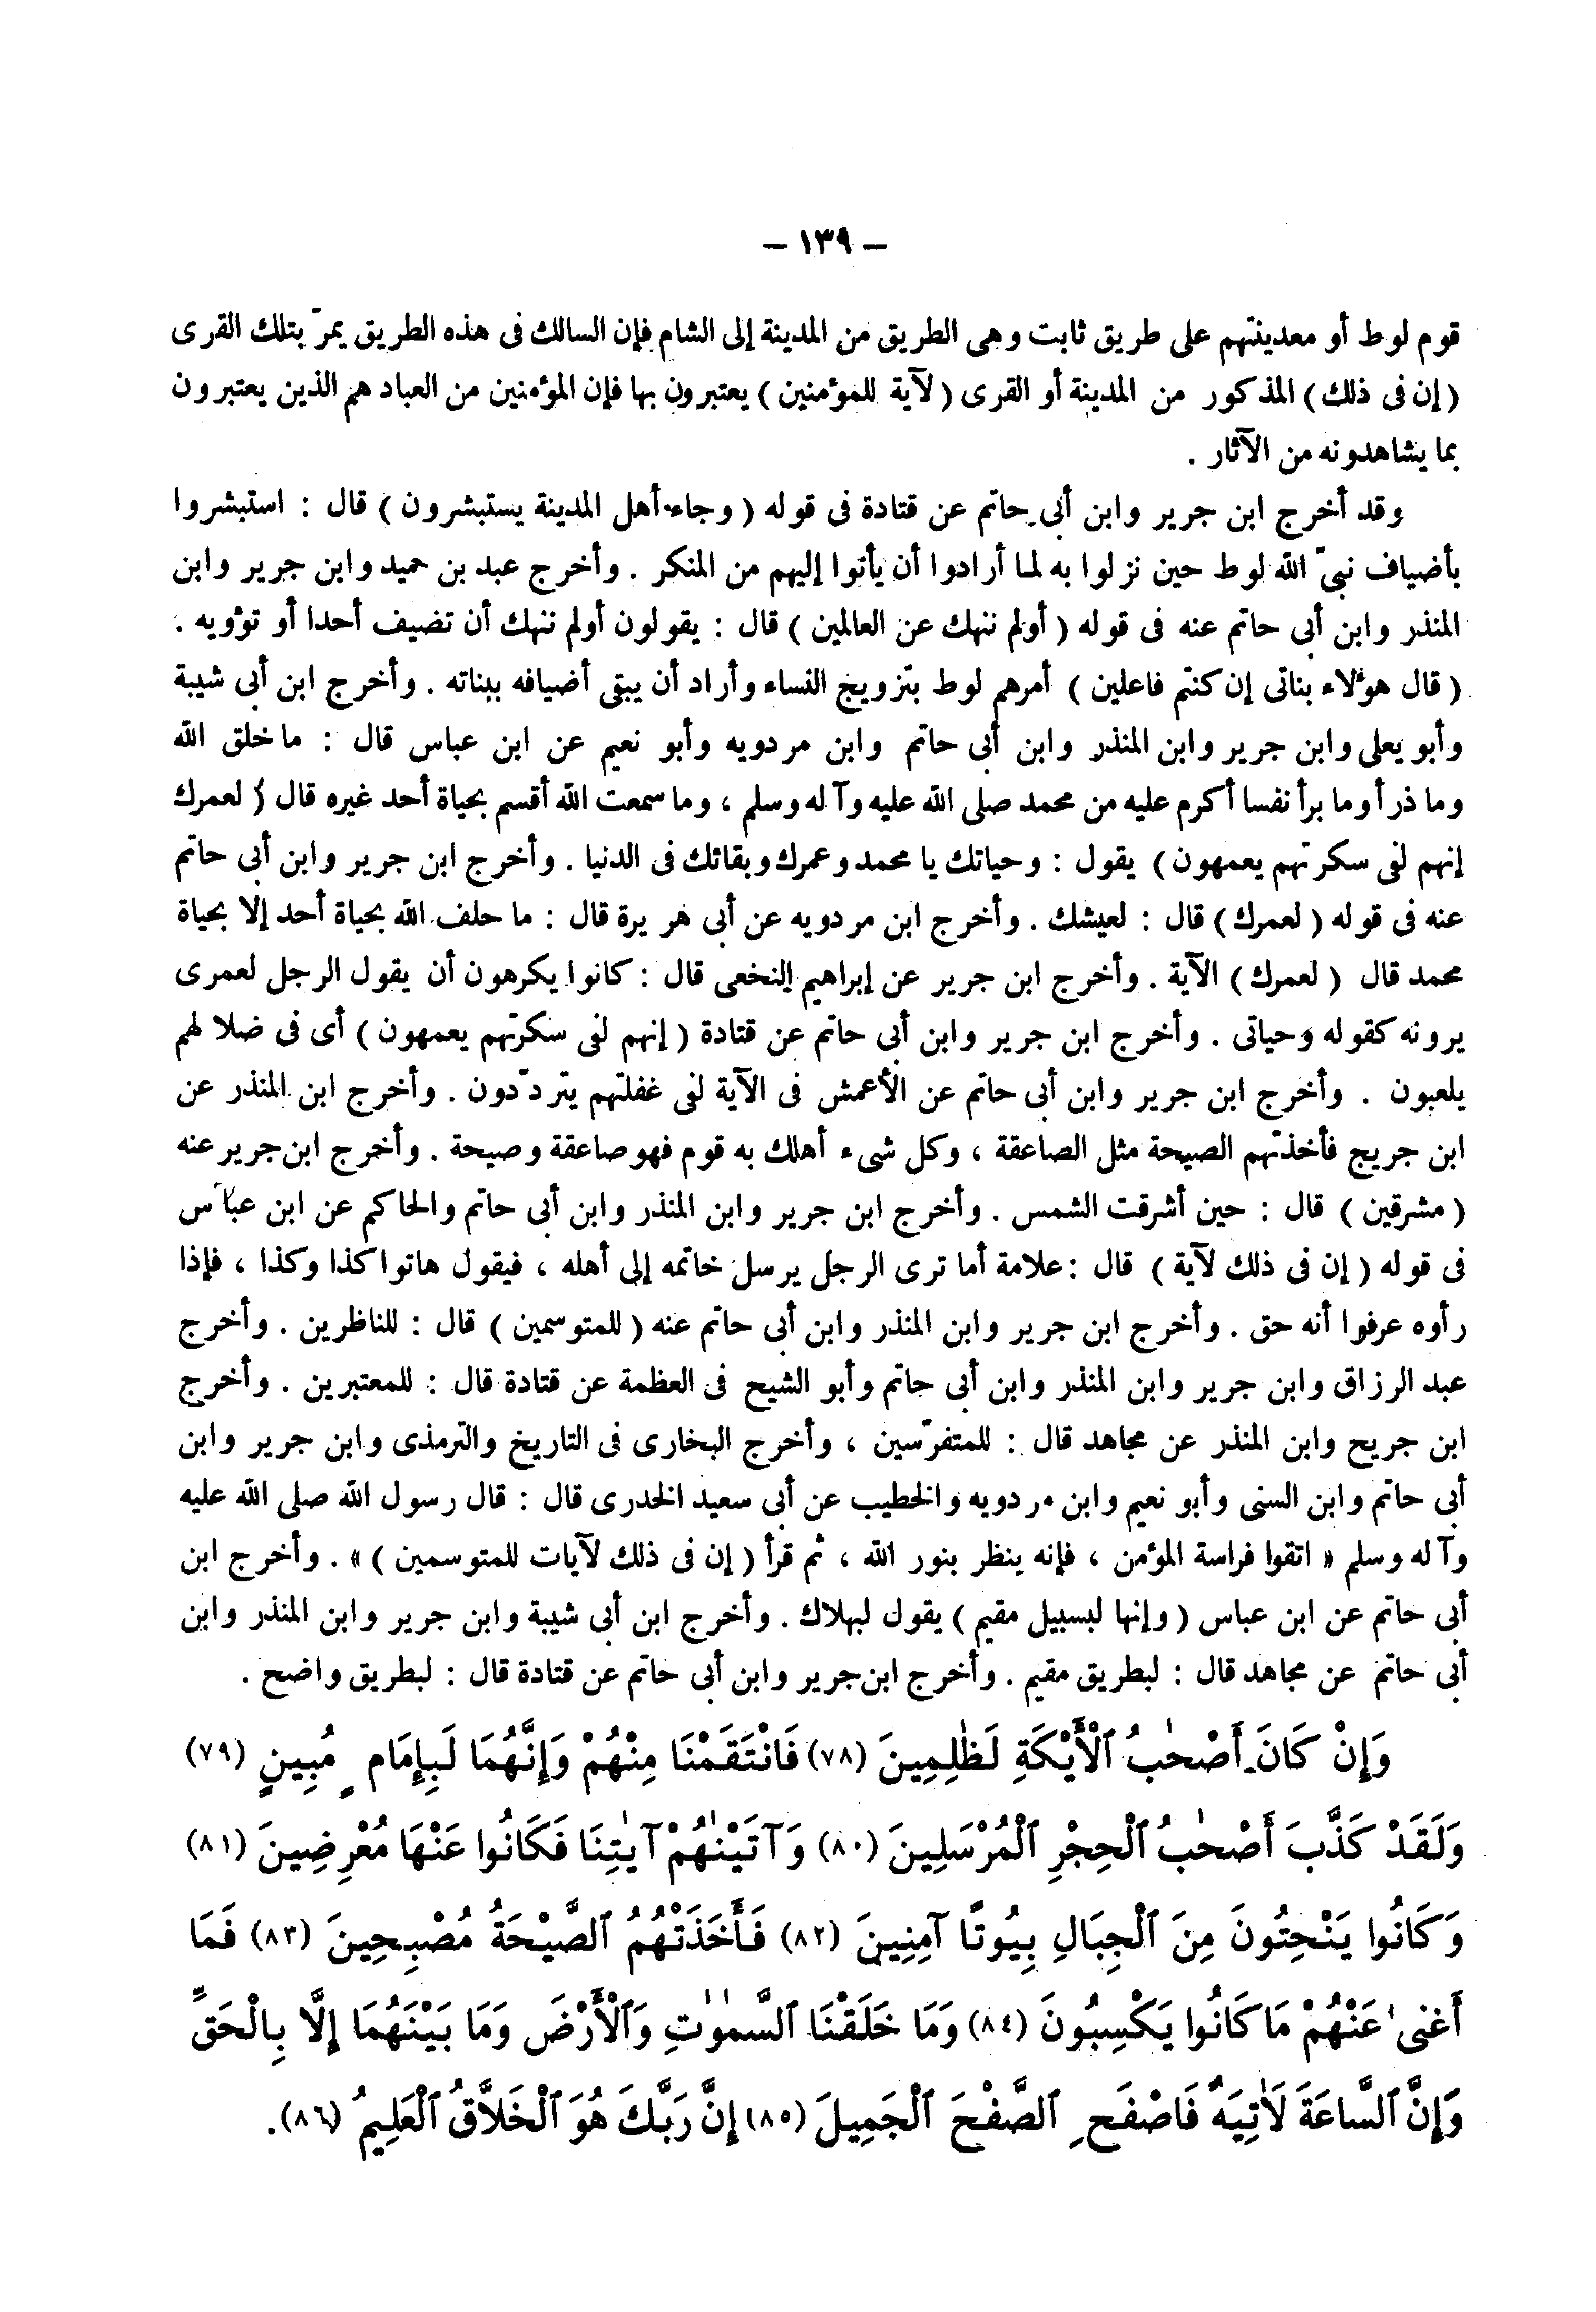 – ١٣٩ –
قوم لوط أو معدينتهم على طريق ثابت وهى الطريق من المدينة إلى الشام فإن السالك فى هذه الطريق يمرّ بتلك القرى
( إن فى ذلك ) المذكور من المدينة أو القرى ( لآية للمؤمنين ) يعتبرون بها فإن المؤمنين من العباد هم الذين يعتبرون
بما يشاهدونه من الآثار .
وقد أخرج ابن جرير وابن أبى حاتم عن قتادة فى قوله ( وجاء أهل المدينة يستبشرون ) قال : استبشروا
بأضياف نبىّ الله لوط حين نزلوا به لما أرادوا أن يأتوا إليهم من المنكر . وأخرج عبد بن حميد وابن جرير وابن
المنذر وابن أبى حاتم عنه فى قوله ( أولم ننهك عن العالمين ) قال : يقولون أولم ننهك أن تضيف أحدا أو تؤويه .
( قال هؤلاء بناتى إن كنتم فاعلين ) أمرهم لوط بتزويج النساء وأراد أن يبقى أضيافه ببناته . وأخرج ابن أبى شيبة
وأبو يعلى وابن جرير وابن المنذر وابن أبى حاتم وابن مردويه وأبو نعيم عن ابن عباس قال : ما خلق الله
وما ذرأ وما برأ نفسا أكرم عليه من محمد صلى الله عليه وآله وسلم ، وما سمعت الله أقسم بحياة أحد غيره قال ( لعمرك
إنهم لفى سكرتهم يعمهون ) يقول : وحياتك يا محمد وعمرك وبقائك فى الدنيا . وأخرج ابن جرير وابن أبى حاتم
عنه فى قوله ( لعمرك ) قال : لعيشك . وأخرج ابن مردويه عن أبى هريرة قال : ما حلف الله بحياة أحد إلا بحياة
محمد قال ( لعمرك ) الآية . وأخرج ابن جرير عن إبراهيم النخعى قال : كانوا يكرهون أن يقول الرجل لعمرى
يرونه كقوله وحياتى . وأخرج ابن جرير وابن أبى حاتم عن قتادة ( إنهم لفى سكرتهم يعمهون ) أى فى ضلالهم
يلعبون . وأخرج ابن جرير وابن أبى حاتم عن الأعمش فى الآية لفى غفلتهم يتردّدون . وأخرج ابن المنذر عن
ابن جريج فأخذتهم الصيحة مثل الصاعقة ، وكل شىء أهلك به قوم فهو صاعقة وصيحة . وأخرج ابن جرير عنه
( مشرقين ) قال : حين أشرقت الشمس . وأخرج ابن جرير وابن المنذر وابن أبى حاتم والحاكم عن ابن عباس
فى قوله ( إن فى ذلك لآية ) قال : علامة أما ترى الرجل يرسل خاتمه إلى أهله ، فيقول هاتوا كذا وكذا ، فإذا
رأوه عرفوا أنه حق . وأخرج ابن جرير وابن المنذر وابن أبى حاتم عنه ( للمتوسمين ) قال : للناظرين . وأخرج
عبد الرزاق وابن جرير وابن المنذر وابن أبى حاتم وأبو الشيح فى العظمة عن قتادة قال : للمعتبرين . وأخرج
ابن جريح وابن المنذر عن مجاهد قال : للمتفرّسين ، وأخرج البخارى فى التاريخ والترمذى وابن جرير وابن
أبى حاتم وابن السنى وأبو نعيم وابن مردويه والخطيب عن أبى سعيد الخدرى قال : قال رسول الله صلى الله عليه
وآله وسلم « اتقوا فراسة المؤمن ، فإنه ينظر بنور الله ، ثم قرأ ( إن فى ذلك لآيات للمتوسمين ) » . وأخرج ابن
أبى حاتم عن ابن عباس ( وإنها لبسبيل مقيم ) يقول لبهلاك . وأخرج ابن أبى شيبة وابن جرير وابن المنذر وابن
أبى حاتم عن مجاهد قال : لبطريق مقيم . وأخرج ابن جرير وابن أبى حاتم عن قتادة قال : لبطريق واضح .
وَإِنْ كَانَ أَصْحٰبُ ٱلْأَيْكَةِ لَظٰلِمِينَ (٧٨) فَانْتَقَمْنَا مِنْهُمْ وَإِنَّهُمَا لَبِإِمَامٍ مُبِينٍ (٧٩)
وَلَقَدْ كَذَّبَ أَصْحٰبُ ٱلْحِجْرِ ٱلْمُرْسَلِينَ (٨٠) وَآتَيْنٰهُمْ آيٰتِنَا فَكَانُوا عَنْهَا مُعْرِضِينَ (٨١)
وَكَانُوا يَنْحِتُونَ مِنَ ٱلْجِبَالِ بِيُوتًا آمِنِينَ (٨٢) فَأَخَذَتْهُمُ ٱلصَّيْحَةُ مُصْبِحِينَ (٨٣) فَمَا
أَغنىٰ عَنْهُمْ مَا كَانُوا يَكْسِبُونَ (٨٤) وَمَا خَلَقْنَا ٱلسَّمٰوٰتِ وَٱلْأَرْضَ وَمَا بَيْنَهُمَا إِلَّا بِالْحَقِّ
وَإِنَّ ٱلسَّاعَةَ لَأٰتِيَةٌ فَاصْفَحِ ٱلصَّفْحَ ٱلْجَمِيلَ (٨٥) إِنَّ رَبَّكَ هُوَ ٱلْخَلَّاقُ ٱلْعَلِيمُ (٨٦).